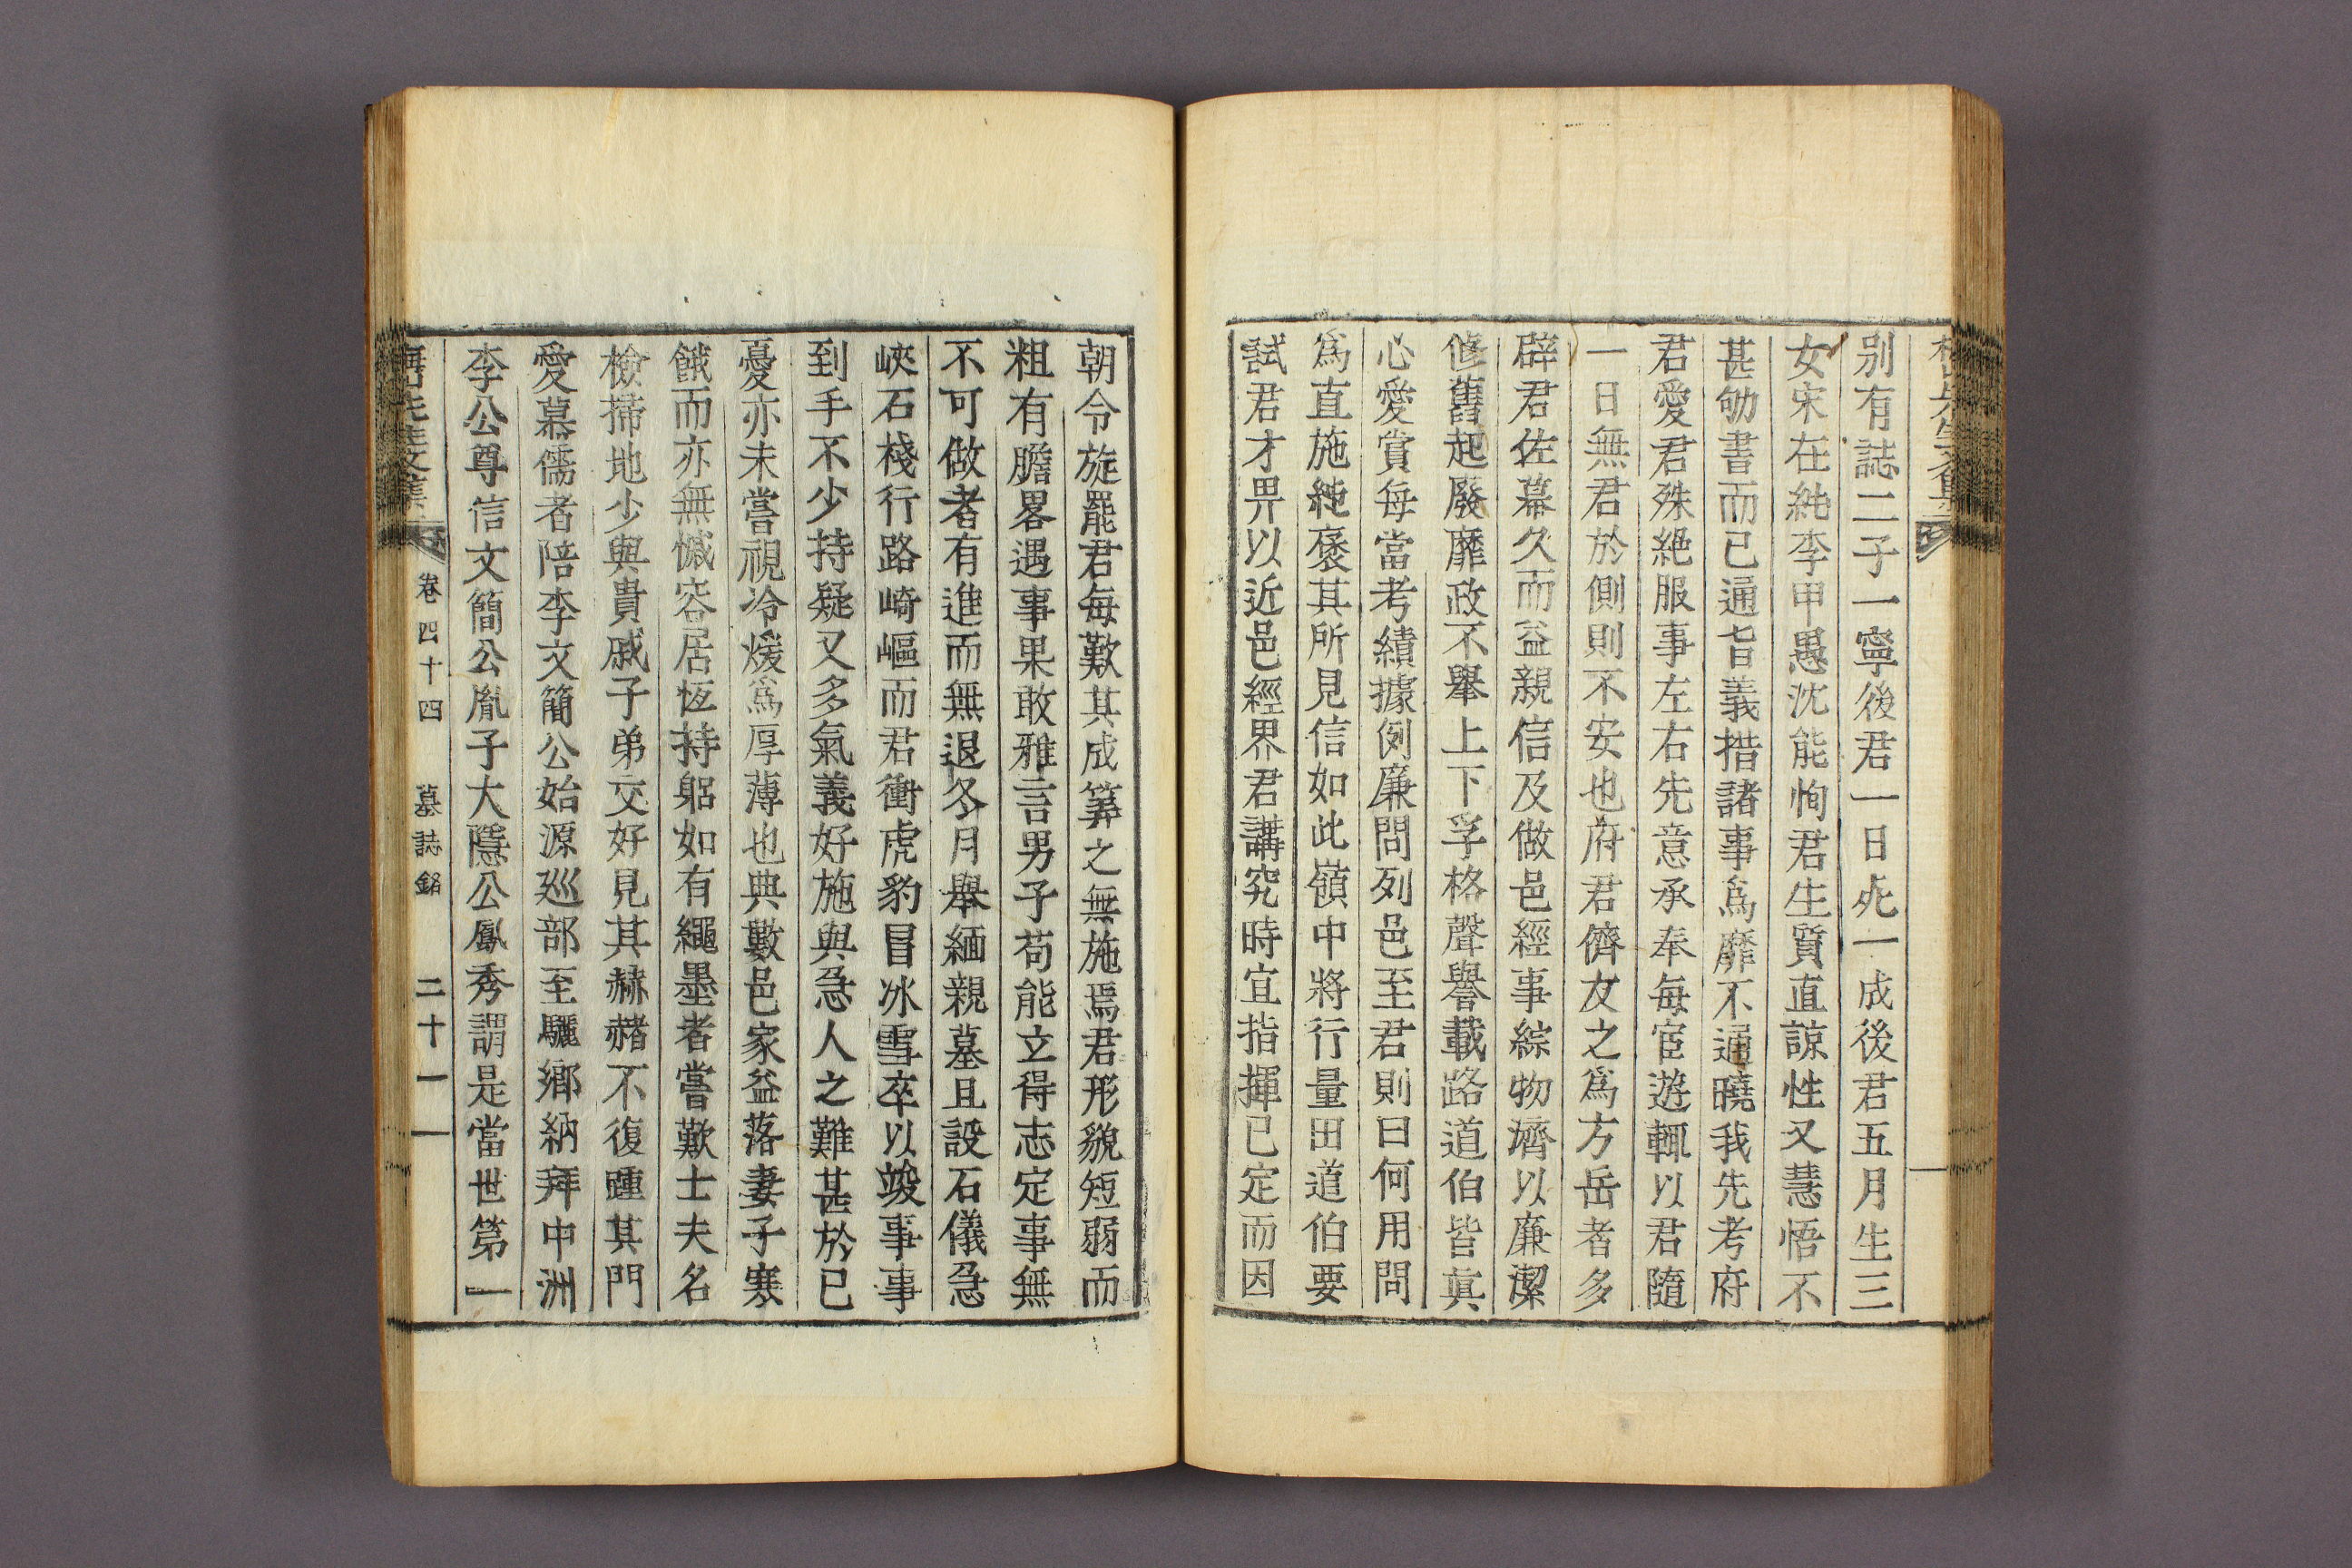 別有誌二子一寧後君一日死一成後君五月生三
女宋在純李甲愚沈能恂君生質直諒性又慧悟不
甚劬書而已通旨義措諸事爲靡不通曉我先考府
君愛君殊絕服事左右先意承奉每宦遊輒以君隨
一日無君於側則不安也府君儕友之爲方岳者多
辟君佐幕久而益親信及做邑經事綜物濟以廉潔
修舊起廢靡政不舉上下孚格聲譽載路道伯皆眞
心愛賞每當考績據例廉問列邑至君則曰何用問
爲直施純褒其所見信如此嶺中將行量田道伯要
試君才畀以近邑經界君講究時宜指揮已定而因
朝令旋罷君每歎其成筭之無施焉君形貌短弱而
粗有膽畧遇事果敢雅言男子苟能立得志定事無
不可做者有進而無退冬月舉緬親墓且設石儀急
峽石棧行路崎嶇而君衝虎豹冒冰雪卒以竣事事
到手不少持疑又多氣義好施與急人之難甚於已
憂亦未嘗視冷煖爲厚薄也典數邑家益落妻子寒
餓而亦無慽容居恆持躬如有繩墨者嘗歎士夫名
檢掃地少與貴戚子弟交好見其赫赭不復踵其門
愛慕儒者陪李文簡公始源廵部至驪鄕納拜中洲
李公尊信文簡公胤子大隱公鳳秀謂是當世第一
先生文集 卷四十四 墓誌銘 二十一